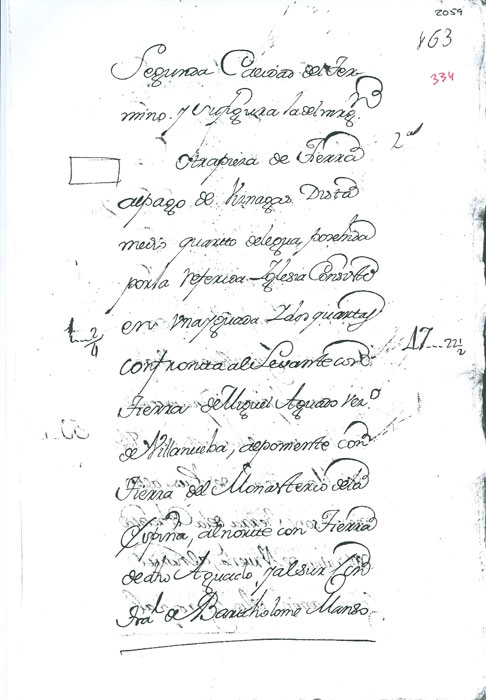 2059
163
334
Segunda Calidad del Ter-
mino. y su figura la del marg.
2ª
Otra pieza de Tierra
al pago de Dista
medio quarto de legua, posehida
por la referida Iglesia Consiste
en una yguada y dos quartas
1.. 2/4
confronta al Levante con
17... 22 1/2
Tierra de Miguel Aguado Vez.º
de Villanueba, al poniente con
Tierra del Monasterio de la
Espina, al norte con Tierra
de dho Aguado, y al sur con
de Bartholome Manso.